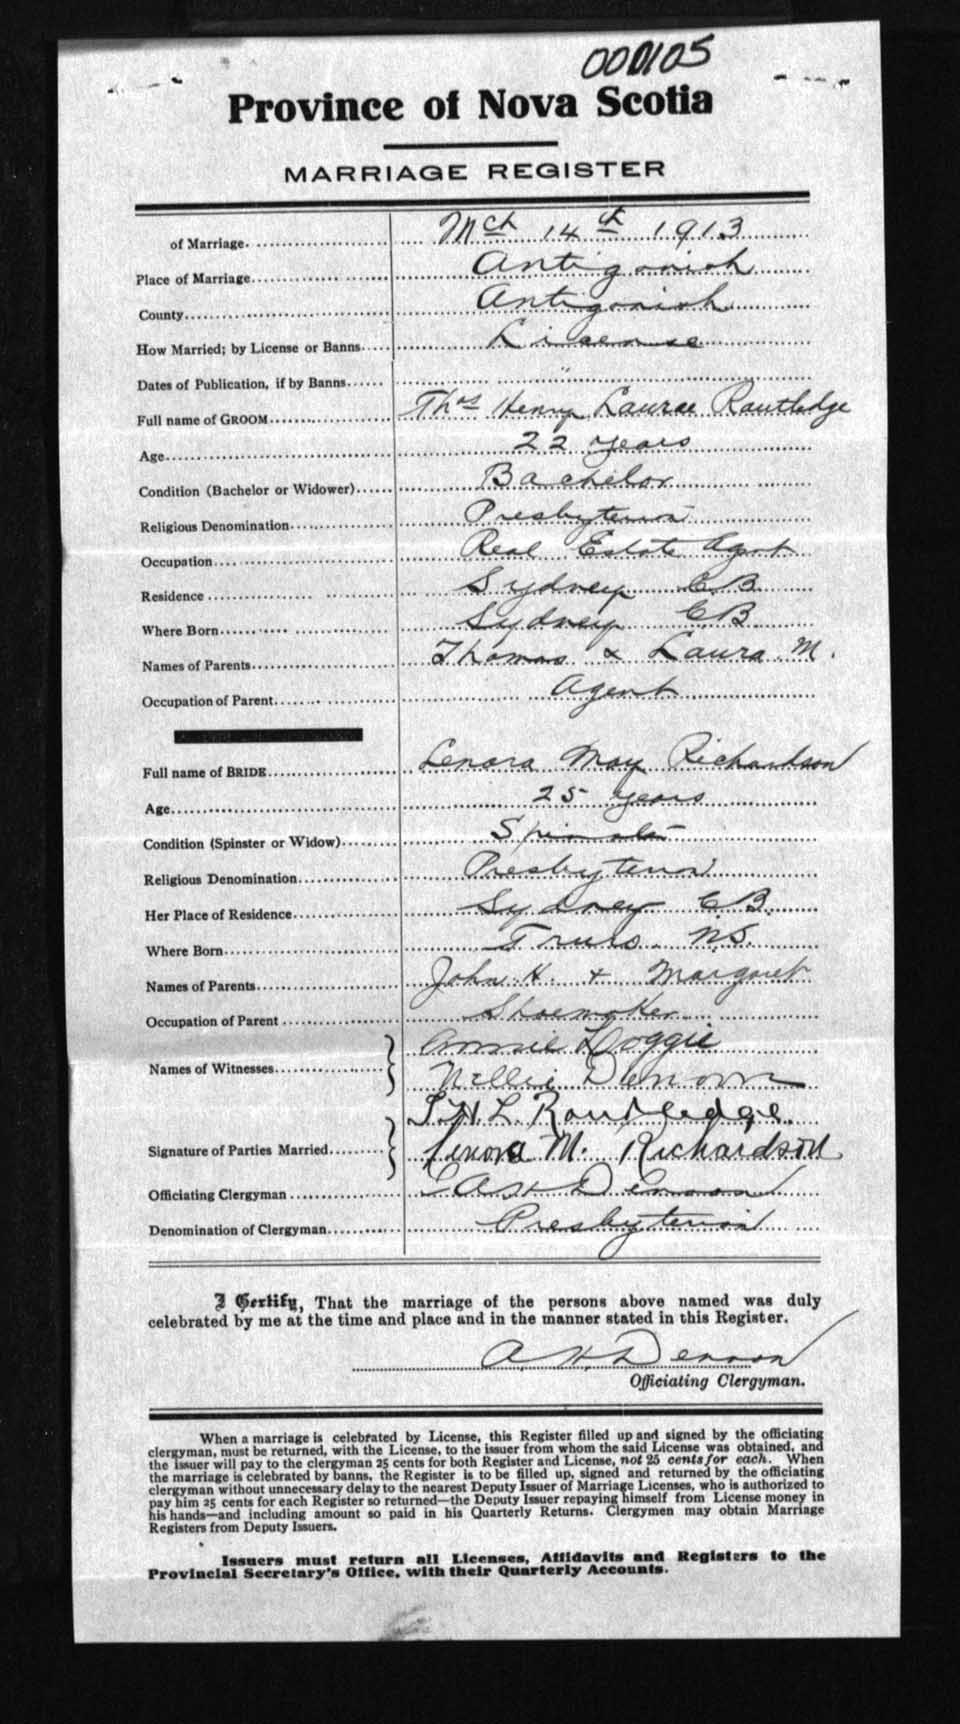 000105
Province of Nova Scotia
MARRIAGE REGISTER
of Marriage. Mch 14th 1913
Place of Marriage Antigonish
County Antigonish
How Married; by License or Banns License
Dates of Publication, if by Banns "
Full name of GROOM Thos Henry Laurae Routledge
Age 22 years
Condition (Bachelor or Widower) Bachelor
Religious Denomination Presbyterian
Occupation Real Estate Agent
Residence Sydney C.B.
Where Born Sydney C.B.
Names of Parents Thomas & Laura M.
Occupation of Parent Agent
Full name of BRIDE Lenora May Richardson
Age 25 years
Condition (Spinster or Widow) Spinster
Religious Denomination Presbyterian
Her Place of Residence Sydney C.B.
Where Born Truro N.S.
Names of Parents John H. & Margaret
Occupation of Parent Shoemaker
Names of Witnesses Annie Hoggie
Nellie Denoon
Signature of Parties Married T.H.L. Routledge.
Lenora M. Richardson
Officiating Clergyman A H Denoon
Denomination of Clergyman Presbyterian
I Certify, That the marriage of the persons above named was duly
celebrated by me at the time and place and in the manner stated in this Register.
A. H. Denoon
Officiating Clergyman.
When a marriage is celebrated by License, this Register filled up and signed by the officiating
clergyman, must be returned, with the License, to the issuer from whom the said License was obtained, and
the issuer will pay to the clergyman 25 cents for both Register and License, not 25 cents for each. When
the marriage is celebrated by banns, the Register is to be filled up, signed and returned by the officiating
clergyman without unnecessary delay to the nearest Deputy Issuer of Marriage Licenses, who is authorized to
pay him 25 cents for each Register so returned—the Deputy Issuer repaying himself from License money in
his hands—and including amount so paid in his Quarterly Returns. Clergymen may obtain Marriage
Registers from Deputy Issuers.
Issuers must return all Licenses, Affidavits and Registers to the
Provincial Secretary's Office, with their Quarterly Accounts.